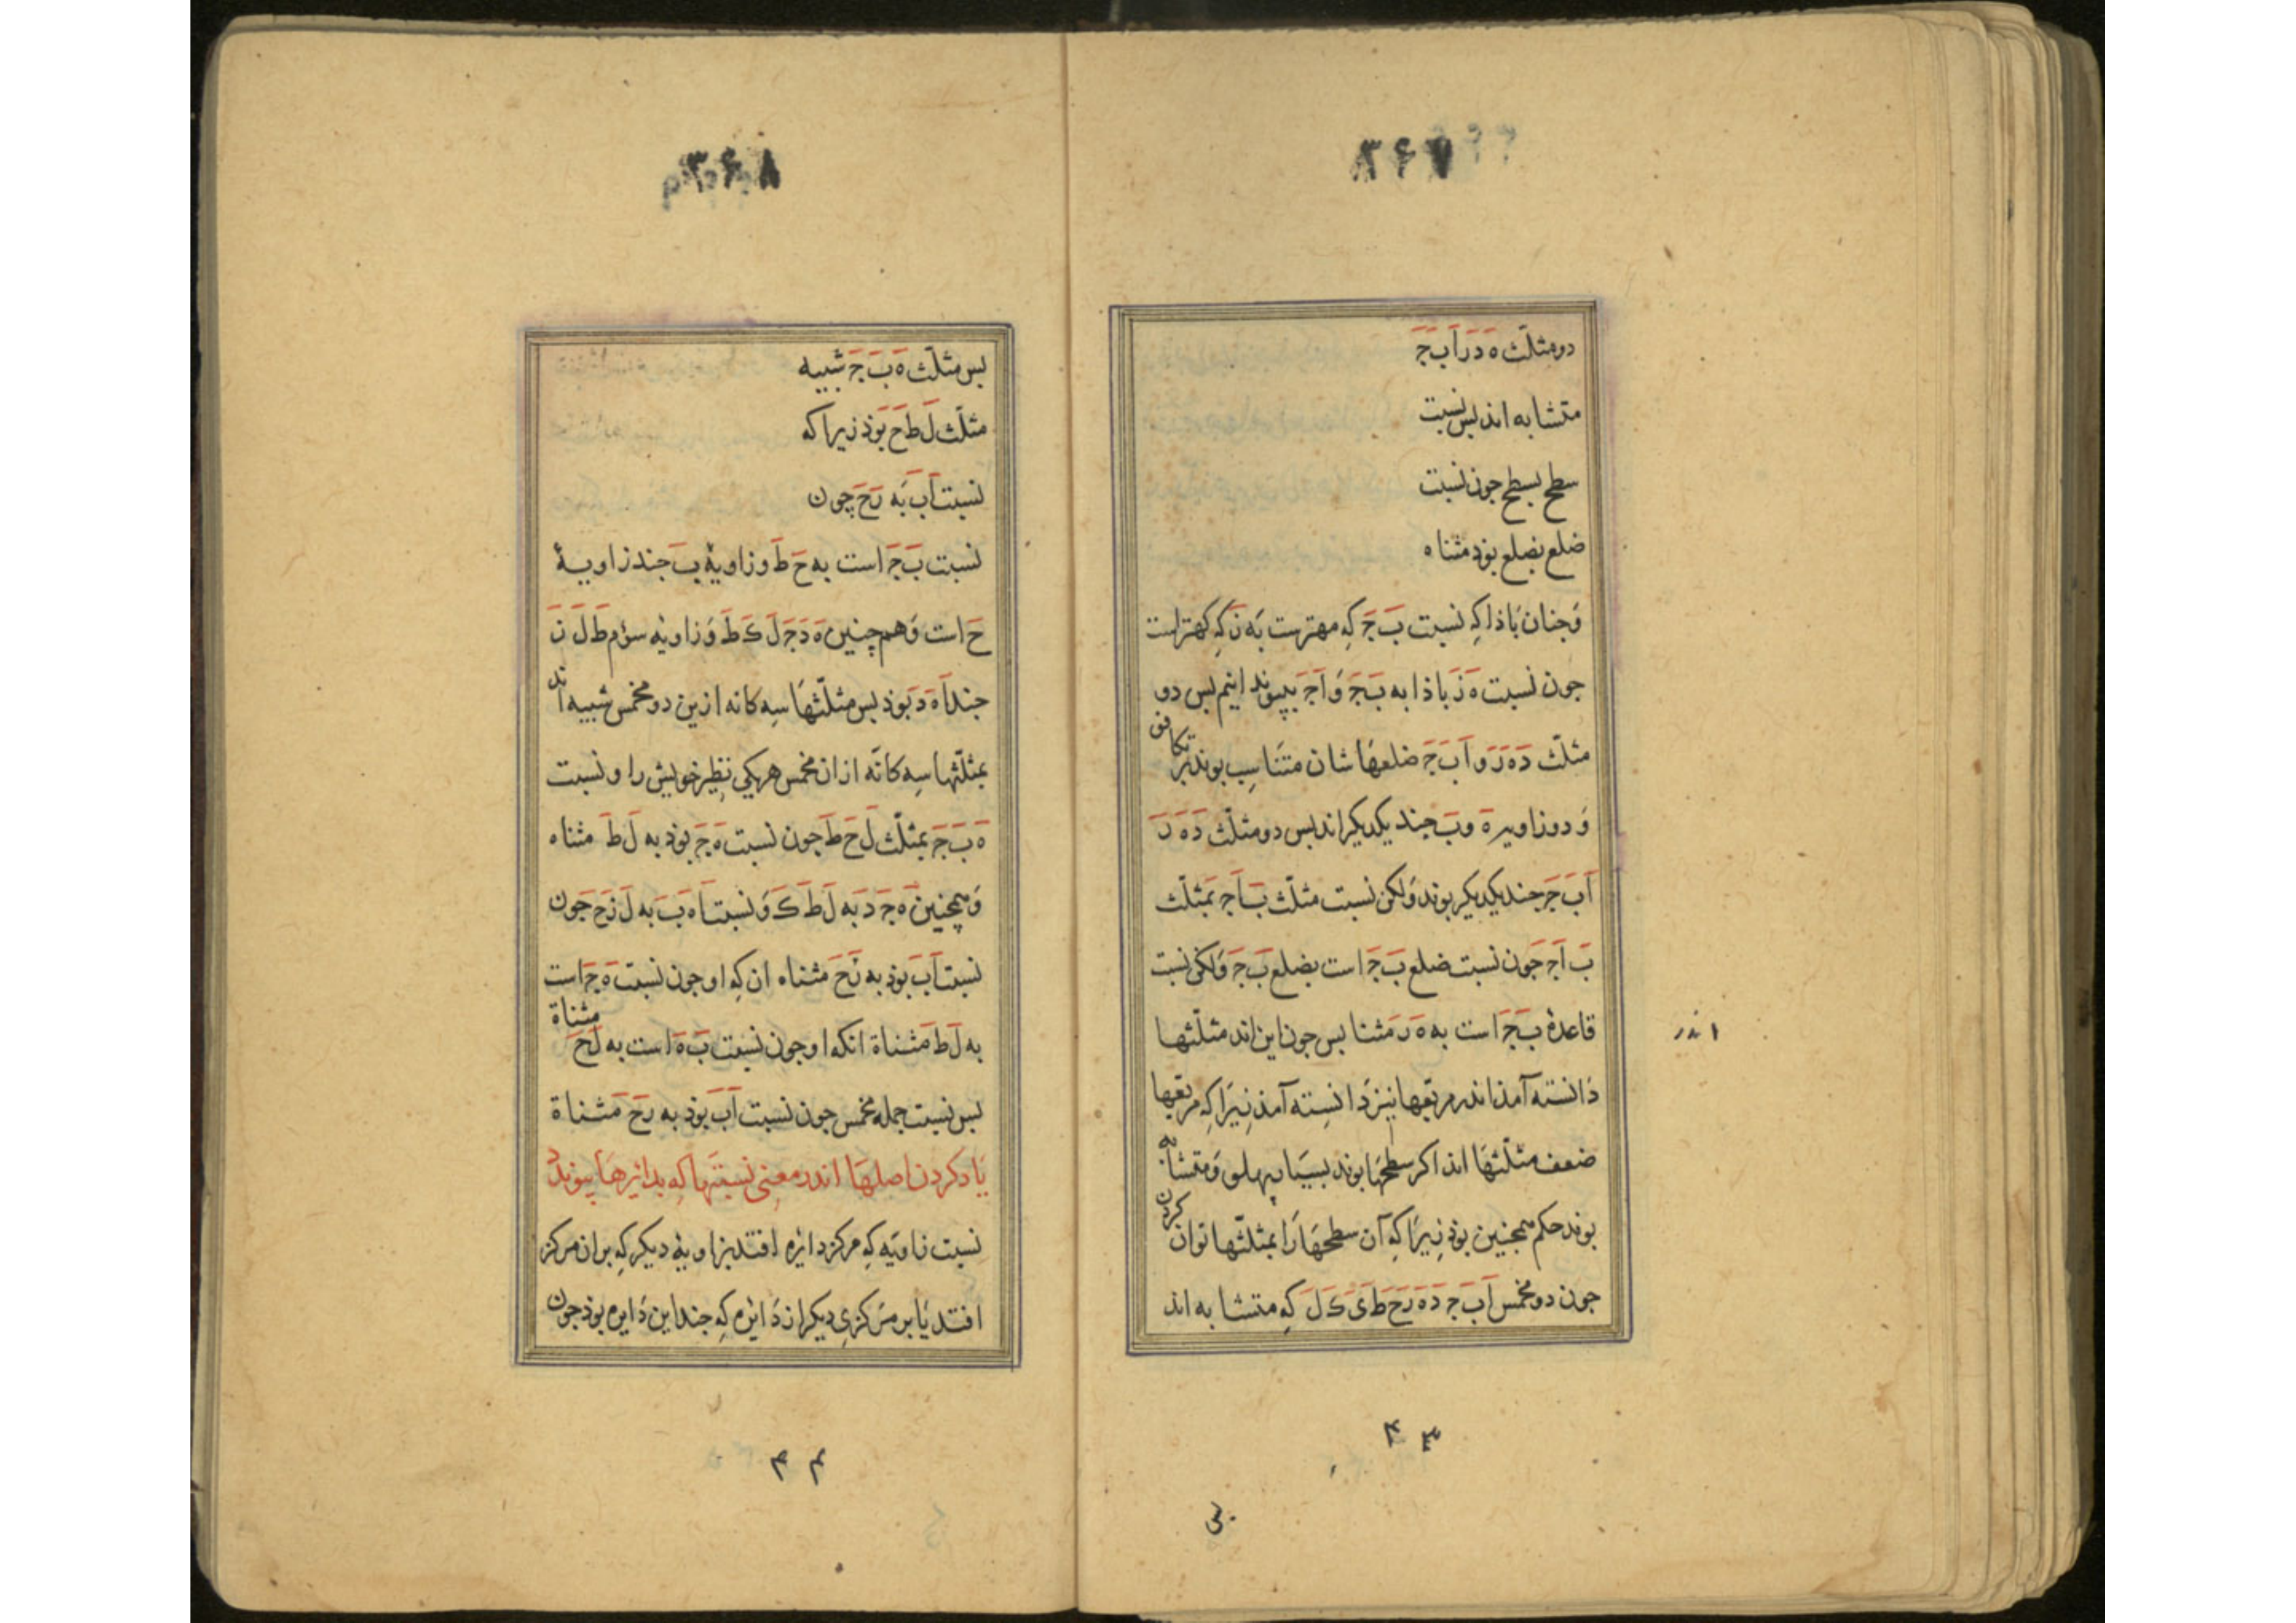 ۳۶۷
دو مثلّث ه د ر ا ب ج
متشابه اند بس نسبت
سطح بسطح جون نسبت
ضلع بضلع بوذ مثناه
وَجنان بَاذا كِه نسبت ب ج كِه مهترست به ز كِه كهتراست
جون نسبت ه ز باذا به ب ج وَ ا ج بپیوند انیم بس دو
مثلّث د ه ر و ا ب ج ضلعهَا شان متنَاسِب بوند بر تكافى
وَ دو زاویه ه و ب جند یكدیكراند بس دو مثلّث د ه ر
ا ب ج جند یكدیكر بوند وَلكن نسبت مثلّث ب ا ج بمثلّث
ب ا ج جون نسبت ضلع ب ج است بضلع ب ج وَلكن نسبت
قاعدهٔ ب ج است به ه ر مثنا بس جون این اند مثلّثها
اندر
دَانسته آمذ اندر مربّعها نیز دَانِسته آمذ زِیرَا كِه مربّعها
ضعف مثلّثهَا انذ اكر سطحهَا بوند بسیَار پهلو وَ متشابه
بوند حكم همچنین بوذ زِیرَا كِه آن سطحهَا رَا بمثلّثها توان كردن
جون دو مخمس ا ب ج د ه ر ح ط ی ك ل كِه متشابه اند
۴۳
۳۶۸
بس مثلّث ه ب ج شبیه
مثلّث ل ط ح بوَذ زیرا كه
نسبت ا ب به ر ح چون
نسبت ب ج است به ح ط و زاویهٔ ب جند زاویهٔ
ح است وَهم چنین ه د ج ل ك ط وَ زاویه سؤم ط ل ن
جند ا ه د بوَذ بس مثلّثهَا سِه كانه ازین دو مخمس شبیه اند
بمثلّثها سِه كانّه از ان مخمس هر یكی نظِیر خویش را و نسبت
ه ب ج بمثلّث ل ح ط جون نسبت ه ج بوذ به ل ط مثناه
وَهمچنین ه ج د به ل ط ك وَ نسبت ا ه ب به ل ز ح جون
نسبت ا ب بوذ به ز ح مثناه ان كِه او جون نسبت ه ج است
به ل ط مثناة انكه او جون نسبت ب ه است به ل ح مثناة
بس نسبت جمله مخمس جون نسبت ا ب بوذ به ر ح مثناة
یَاد كردن اصلهَا اندر معنی نسبتهَا كِه بدائرهَا پیوندد
نسبت زاویَه كِه مركز دائره افتد بزاویهٔ دیكر كِه بر ان مركز
افتد یَا بر مركزی دیكر از دَائره كِه جند این دَایره بوذ جون
۴۴